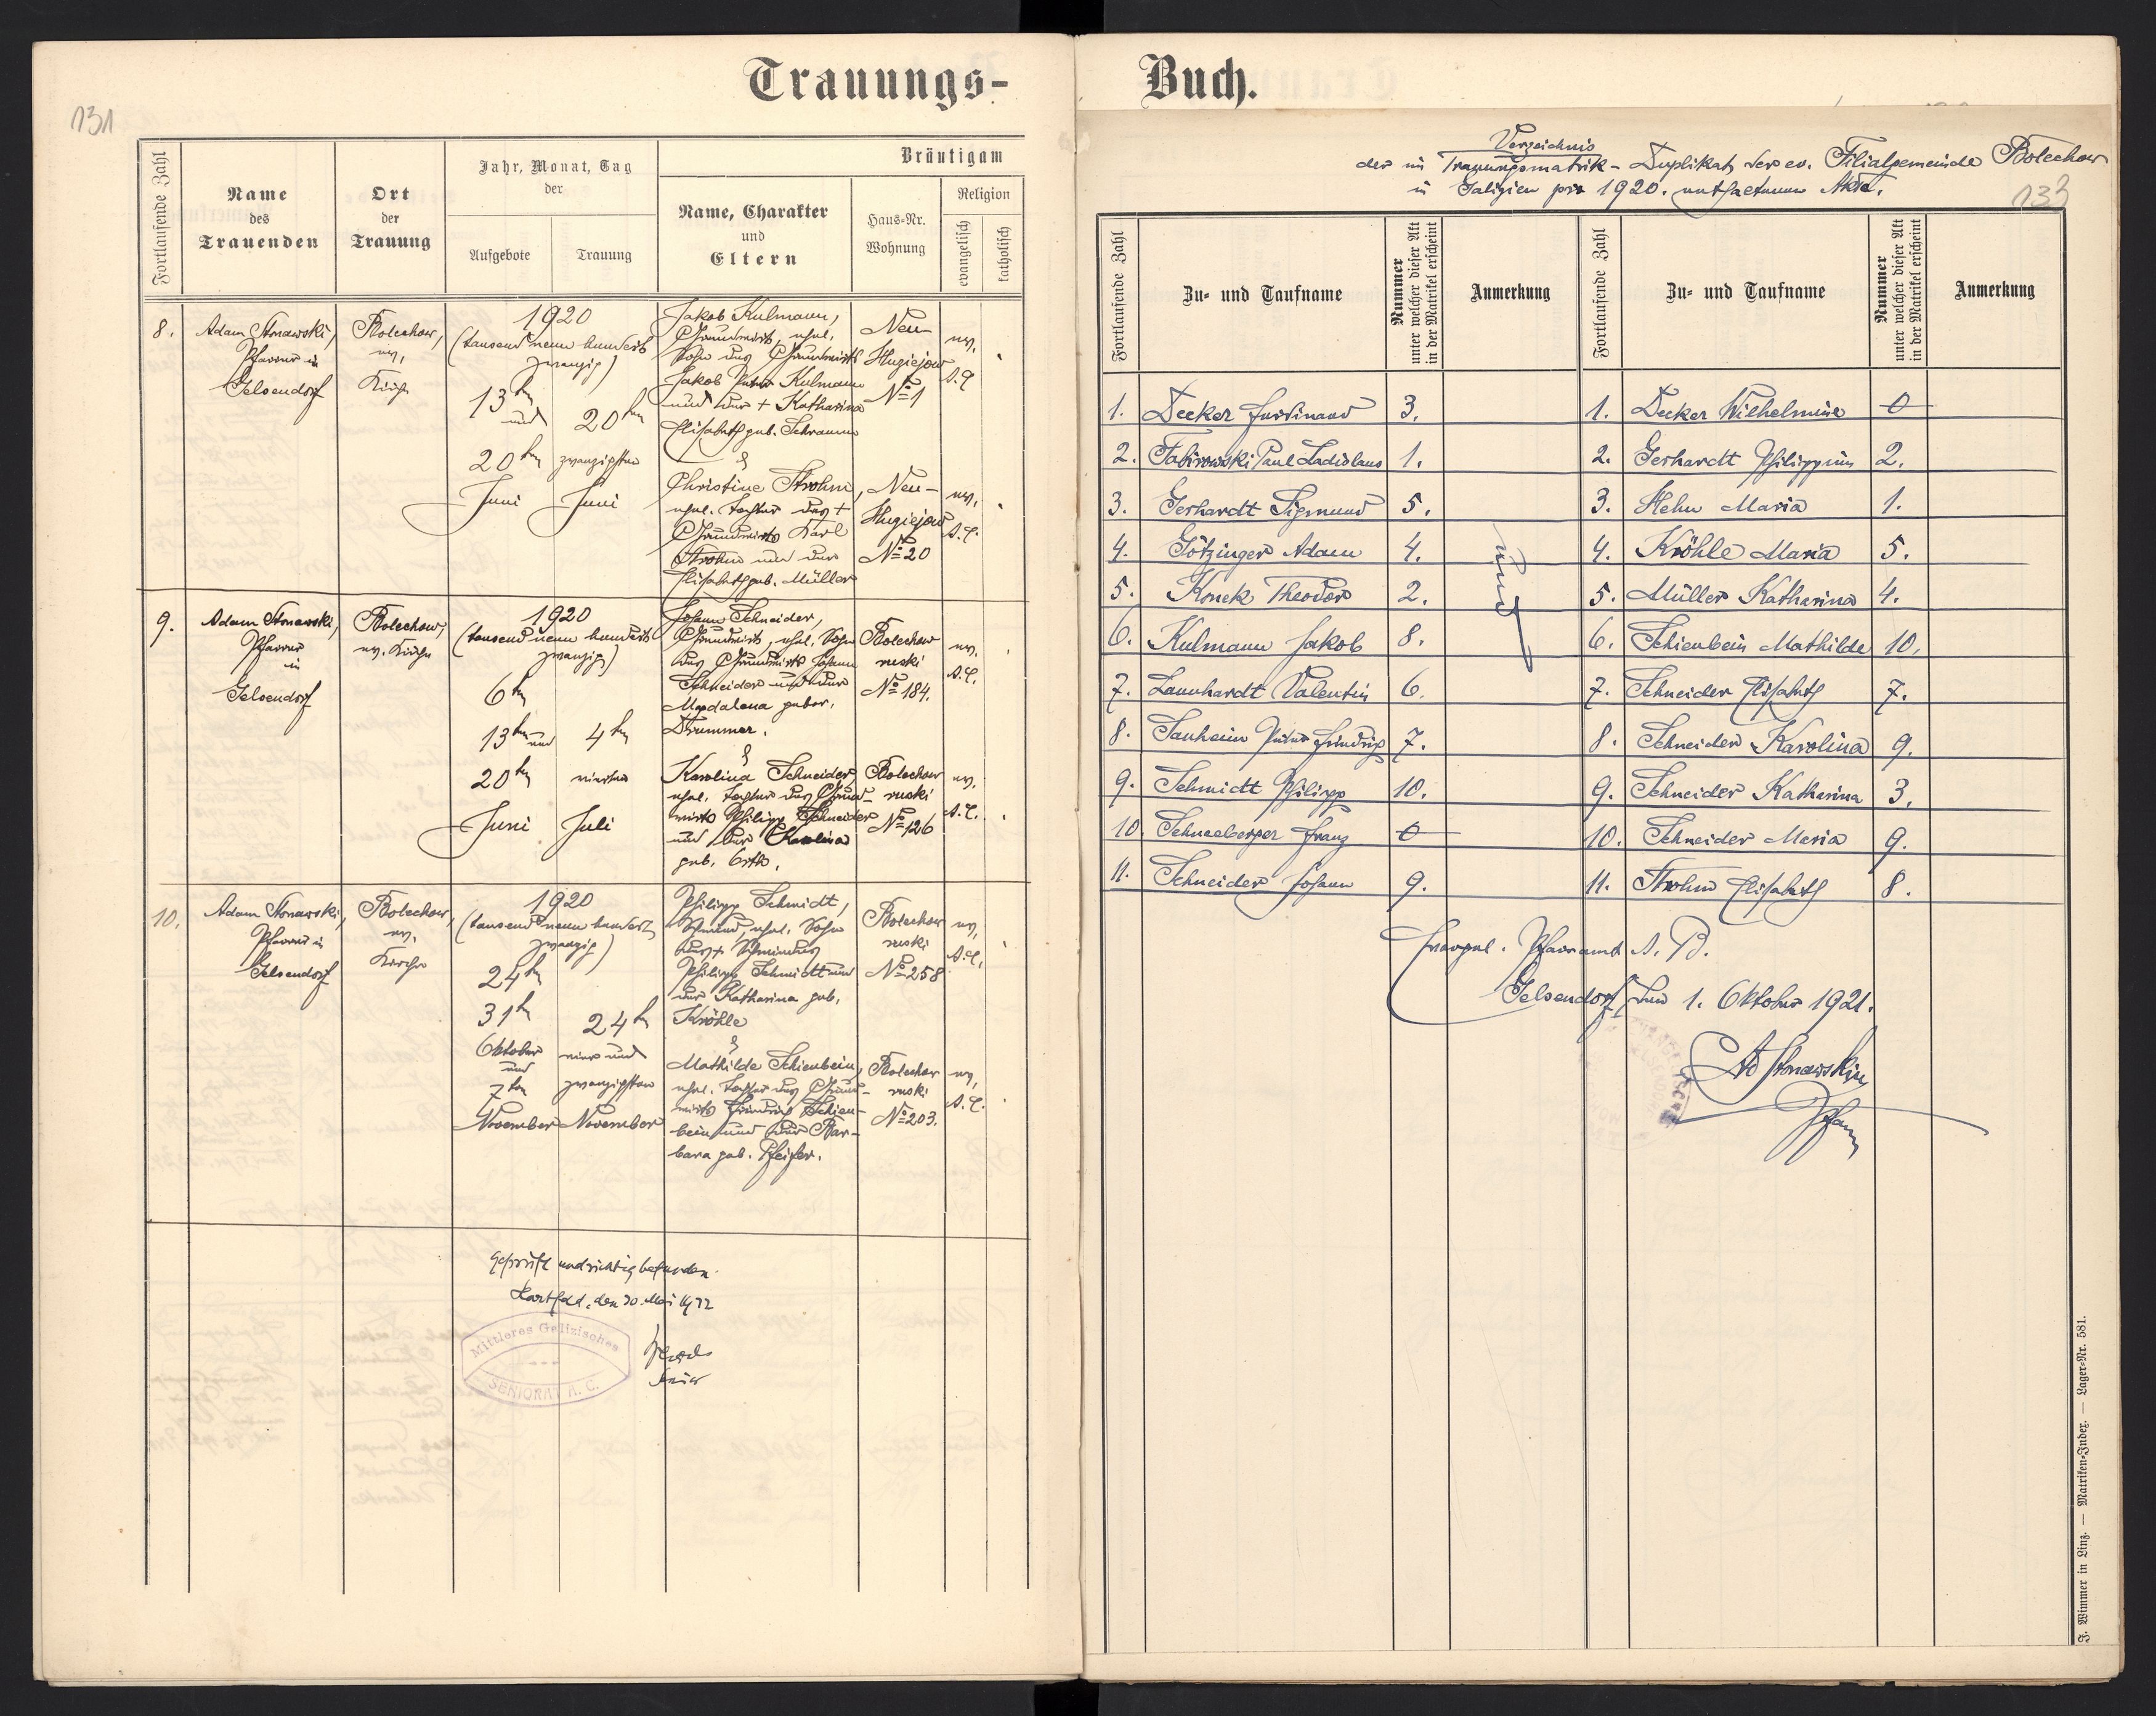 Trauungs-
131
Fortlaufende Zahl
Name
des
Trauenden
Ort
der
Trauung
Jahr, Monat, Tag
der
Aufgebote
Trauung
Bräutigam
Name, Charakter
und
Eltern
Haus-Nr.
Wohnung
Religion
evangelisch
katholisch
8.
Adam Stonawski,
Pfarrer in
Gelsendorf
Bolechow,
ev.
Kirche
1920
(tausend neun hundert
zwanzig)
13ten
und
20ten
20ten
zwanzigsten
Juni
Juni
Jakob Kulmann,
Grundwirt, ehel.
Sohn des Grundwirts
Jakob Peter Kulmann
und der + Katharina
Elisabeth geb. Schramm
&
Christine Strohm,
ehel. Tochter des +
Grundwirts Karl
Strohm und der
Elisabeth geb. Müller
Neu-
Hugiejow
No 1
Neu-
Hugiejow
No 20
ev.
A.C.
ev.
A.C.
9.
Adam Stonawski,
Pfarrer
in
Gelsendorf
Bolechow,
ev. Kirche
1920
(tausend neun hundert
zwanzig)
6ten
13ten und
4ten
20ten
vierten
Juni
Juli
Johann Schneider,
Grundwirt, ehel. Sohn
des Grundwirts Johann
Schneider und der
Magdalena gebor.
Drummer.
&
Karolina Schneider,
ehel. Tochter des Grund-
wirts Philipp Schneider
und der Karolina
geb. Orth.
Bolechow
ruski
No 184.
Bolechow
ruski
No 126
ev.
A.C.
ev.
A.C.
10.
Adam Stonawski,
Pfarrer in
Gelsendorf
Bolechow,
ev.
Kirche
1920
(tausend neun hundert
zwanzig)
24ten
31ten
24ten
Oktober
vier und
und
7ten
zwanzigsten
November
November
Philipp Schmidt,
Schmied, ehel. Sohn
des + Schmiedes
Philipp Schmidt und
der Katharina geb.
Kröhle
&
Mathilde Schienbein,
ehel. Tochter des Grund-
wirts Friedrich Schien-
bein und der Bar-
bara geb. Pfeifer.
Bolechow
ruski
No 258
Bolechow
ruski
No 203.
ev.
A.C.
ev.
A.C.
Geprüft und richtig befunden.
Hartfeld, den 30. Mai 1922
Mittleres Galizisches
SENIORAT A. C.
Senior
Buch.
Verzeichnis
der im Trauungsmatrik-Duplikat der ev. Filialgemeinde Bolechow
in Galizien pro 1920. enthaltenen Akte.
133
Fortlaufende Zahl
Zu- und Taufname
Nummer
unter welcher dieser Akt
in der Matrikel erscheint
Anmerkung
Fortlaufende Zahl
Zu- und Taufname
Nummer
unter welcher dieser Akt
in der Matrikel erscheint
Anmerkung
1. Decker Ferdinand 3. 1. Decker Wilhelmine 0
2. Fabirowski Paul Ladislaus 1. 2. Gerhardt Philippine 2.
3. Gerhardt Sigmund 5. 3. Hehn Maria 1.
4. Götzinger Adam 4. 4. Kröhle Maria 5.
5. Konek Theodor 2. 5. Müller Katharina 4.
6. Kulmann Jakob 8. 6. Schienbein Mathilde 10.
7. Launhardt Valentin 6. 7. Schneider Elisabeth 7.
8. Sauheim Peter Friedrich 7. 8. Schneider Karolina 9.
9. Schmidt Philipp 10. 9. Schneider Katharina 3.
10. Schneeberger Franz 0 10. Schneider Maria 9.
11. Schneider Johann 9. 11. Strohm Elisabeth 8.
und
Evangel. Pfarramt A. B.
Gelsendorf, den 1. Oktober 1921.
Ad Stonawski
Pfarrer
F. Wimmer in Linz. — Matriken-Index. — Lager-Nr. 581.